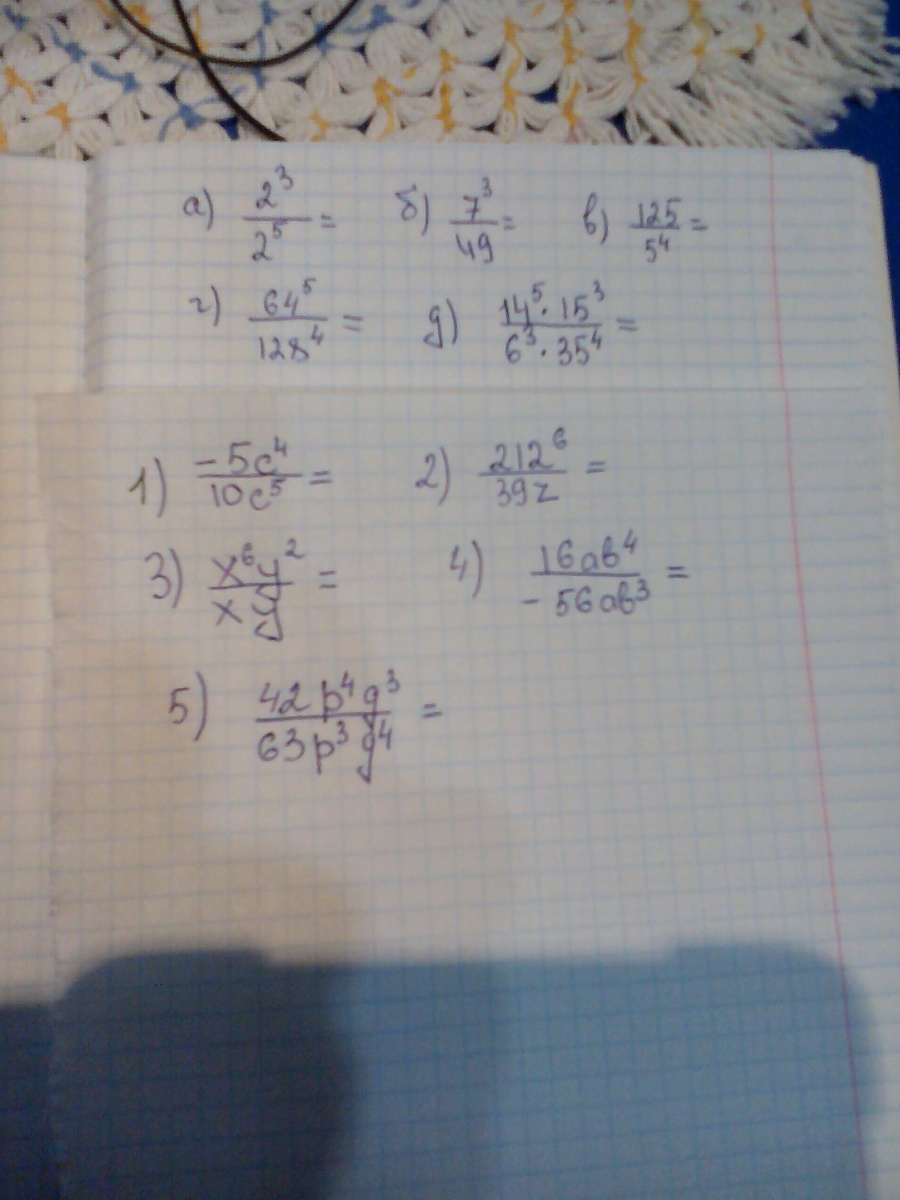 а) 2³/2⁵ = б) 7³/49 = в) 125/5⁴ =
г) 64⁵/128⁴ = д) 14⁵·15³/6³·35⁴ =
1) -5c⁴/10c⁵ = 2) 21z⁶/39z =
3) x⁶y²/xy = 4) 16ab⁴/-56ab³ =
5) 42p⁴g³/63p³g⁴ =